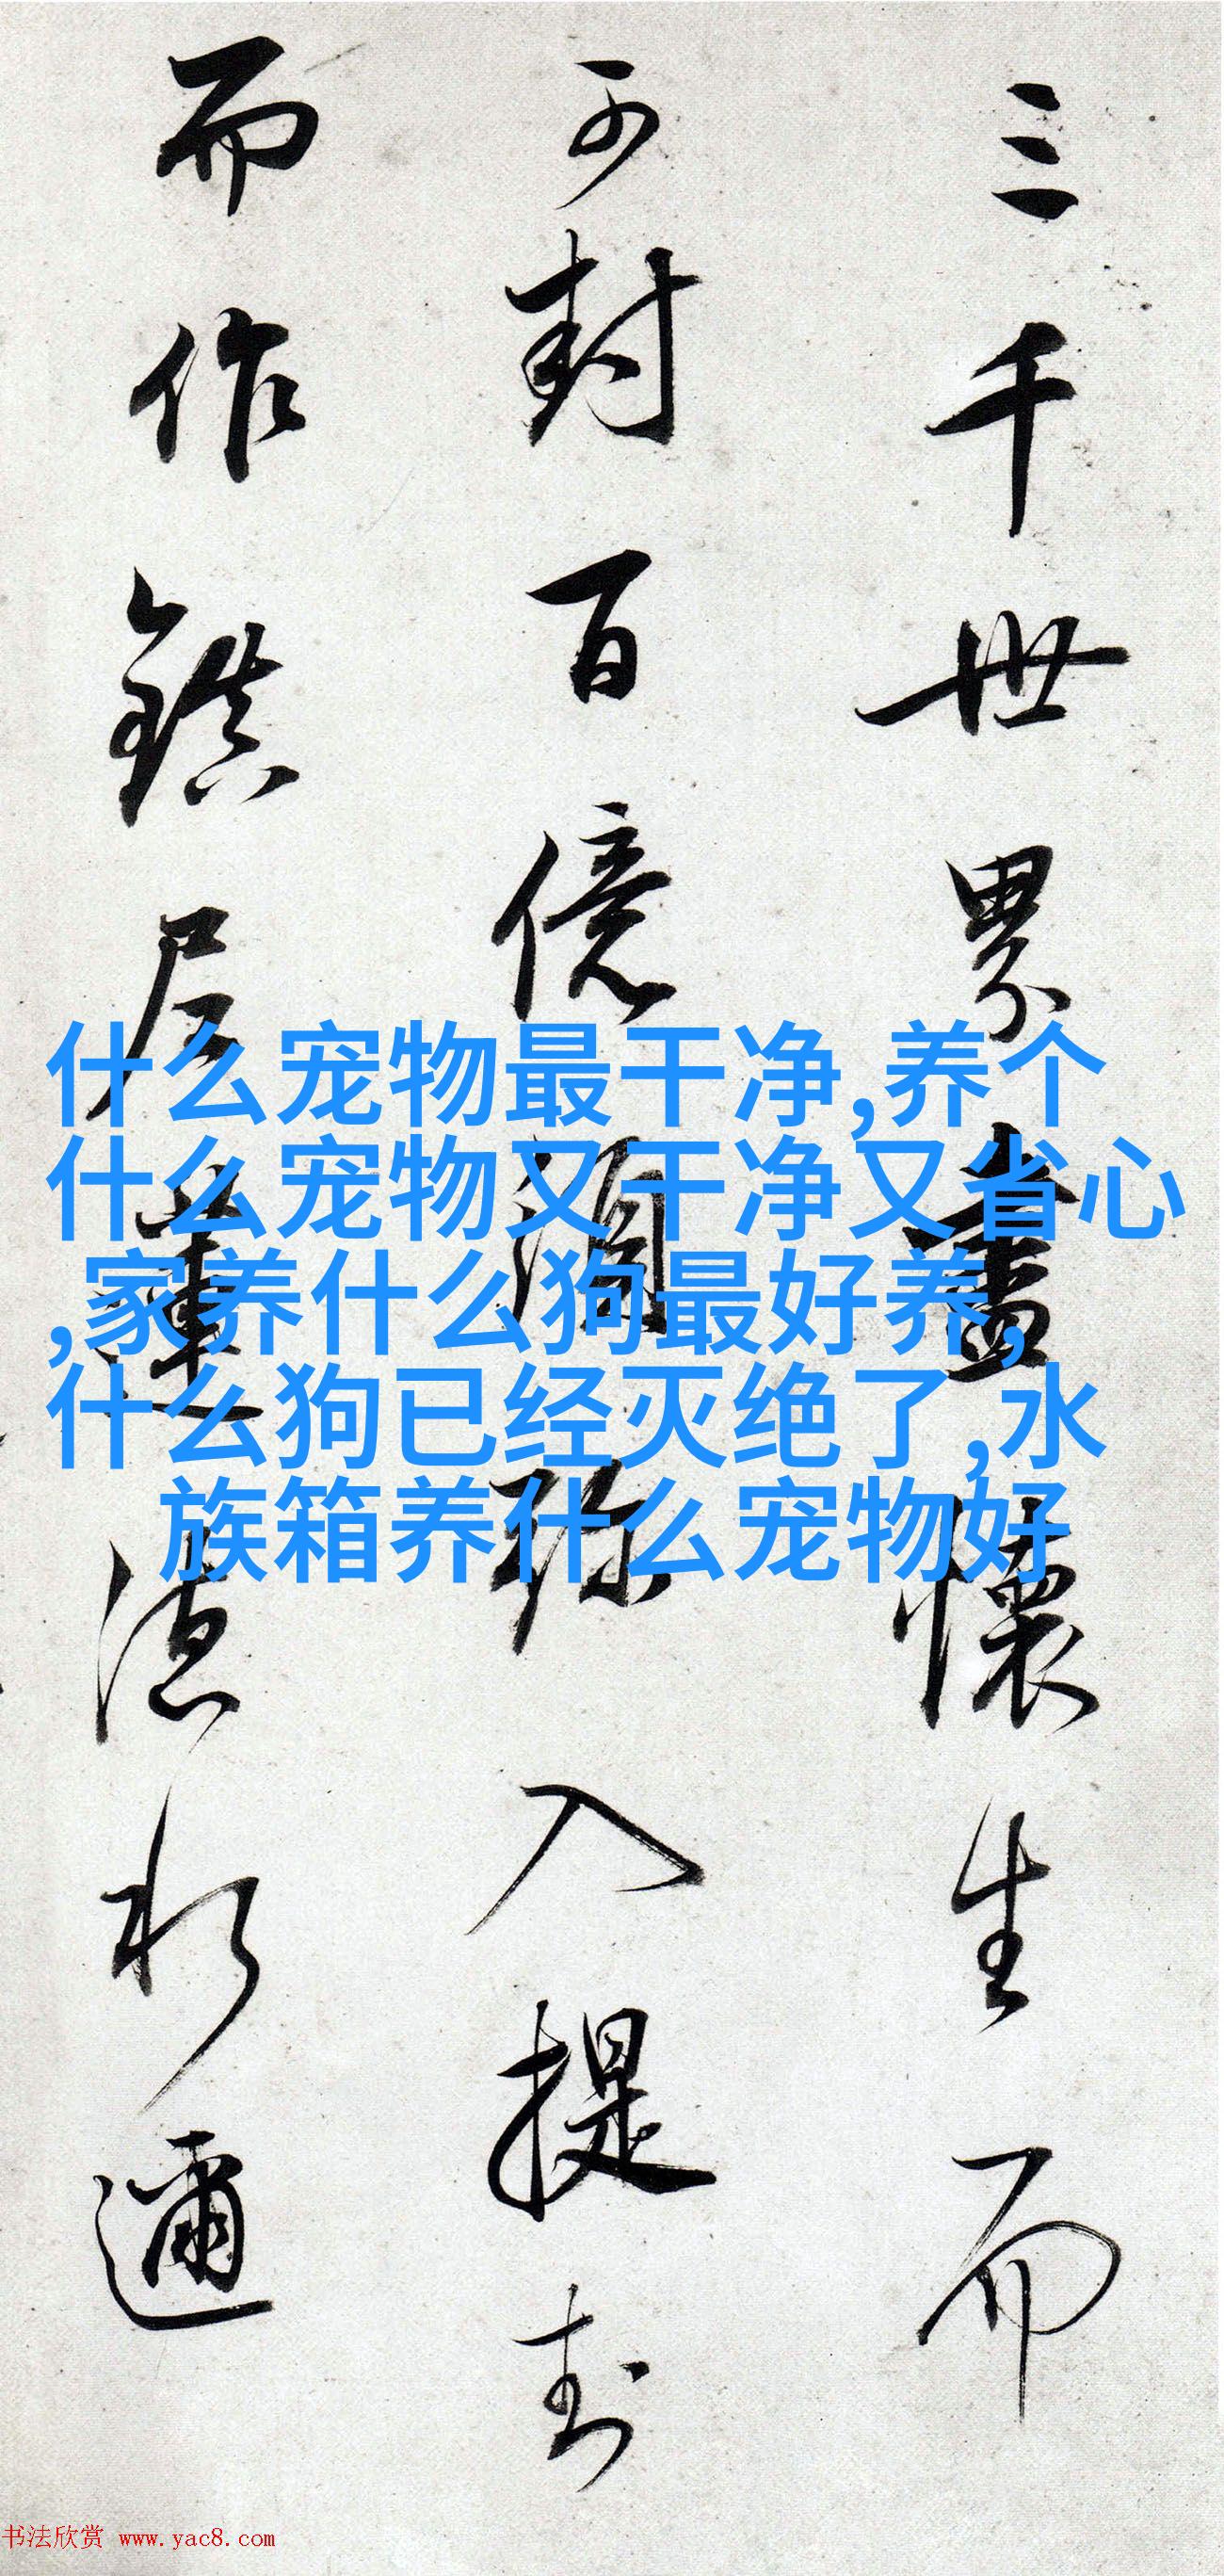 三千世界盡懷生而
可封百億須弥入提封
而作鎮尼蓮德水邇
什么宠物最干净,养个
什么宠物又干净又省心
,家养什么狗最好养,
什么狗已经灭绝了,水
族箱养什么宠物好
书法欣赏 www.yac8.com